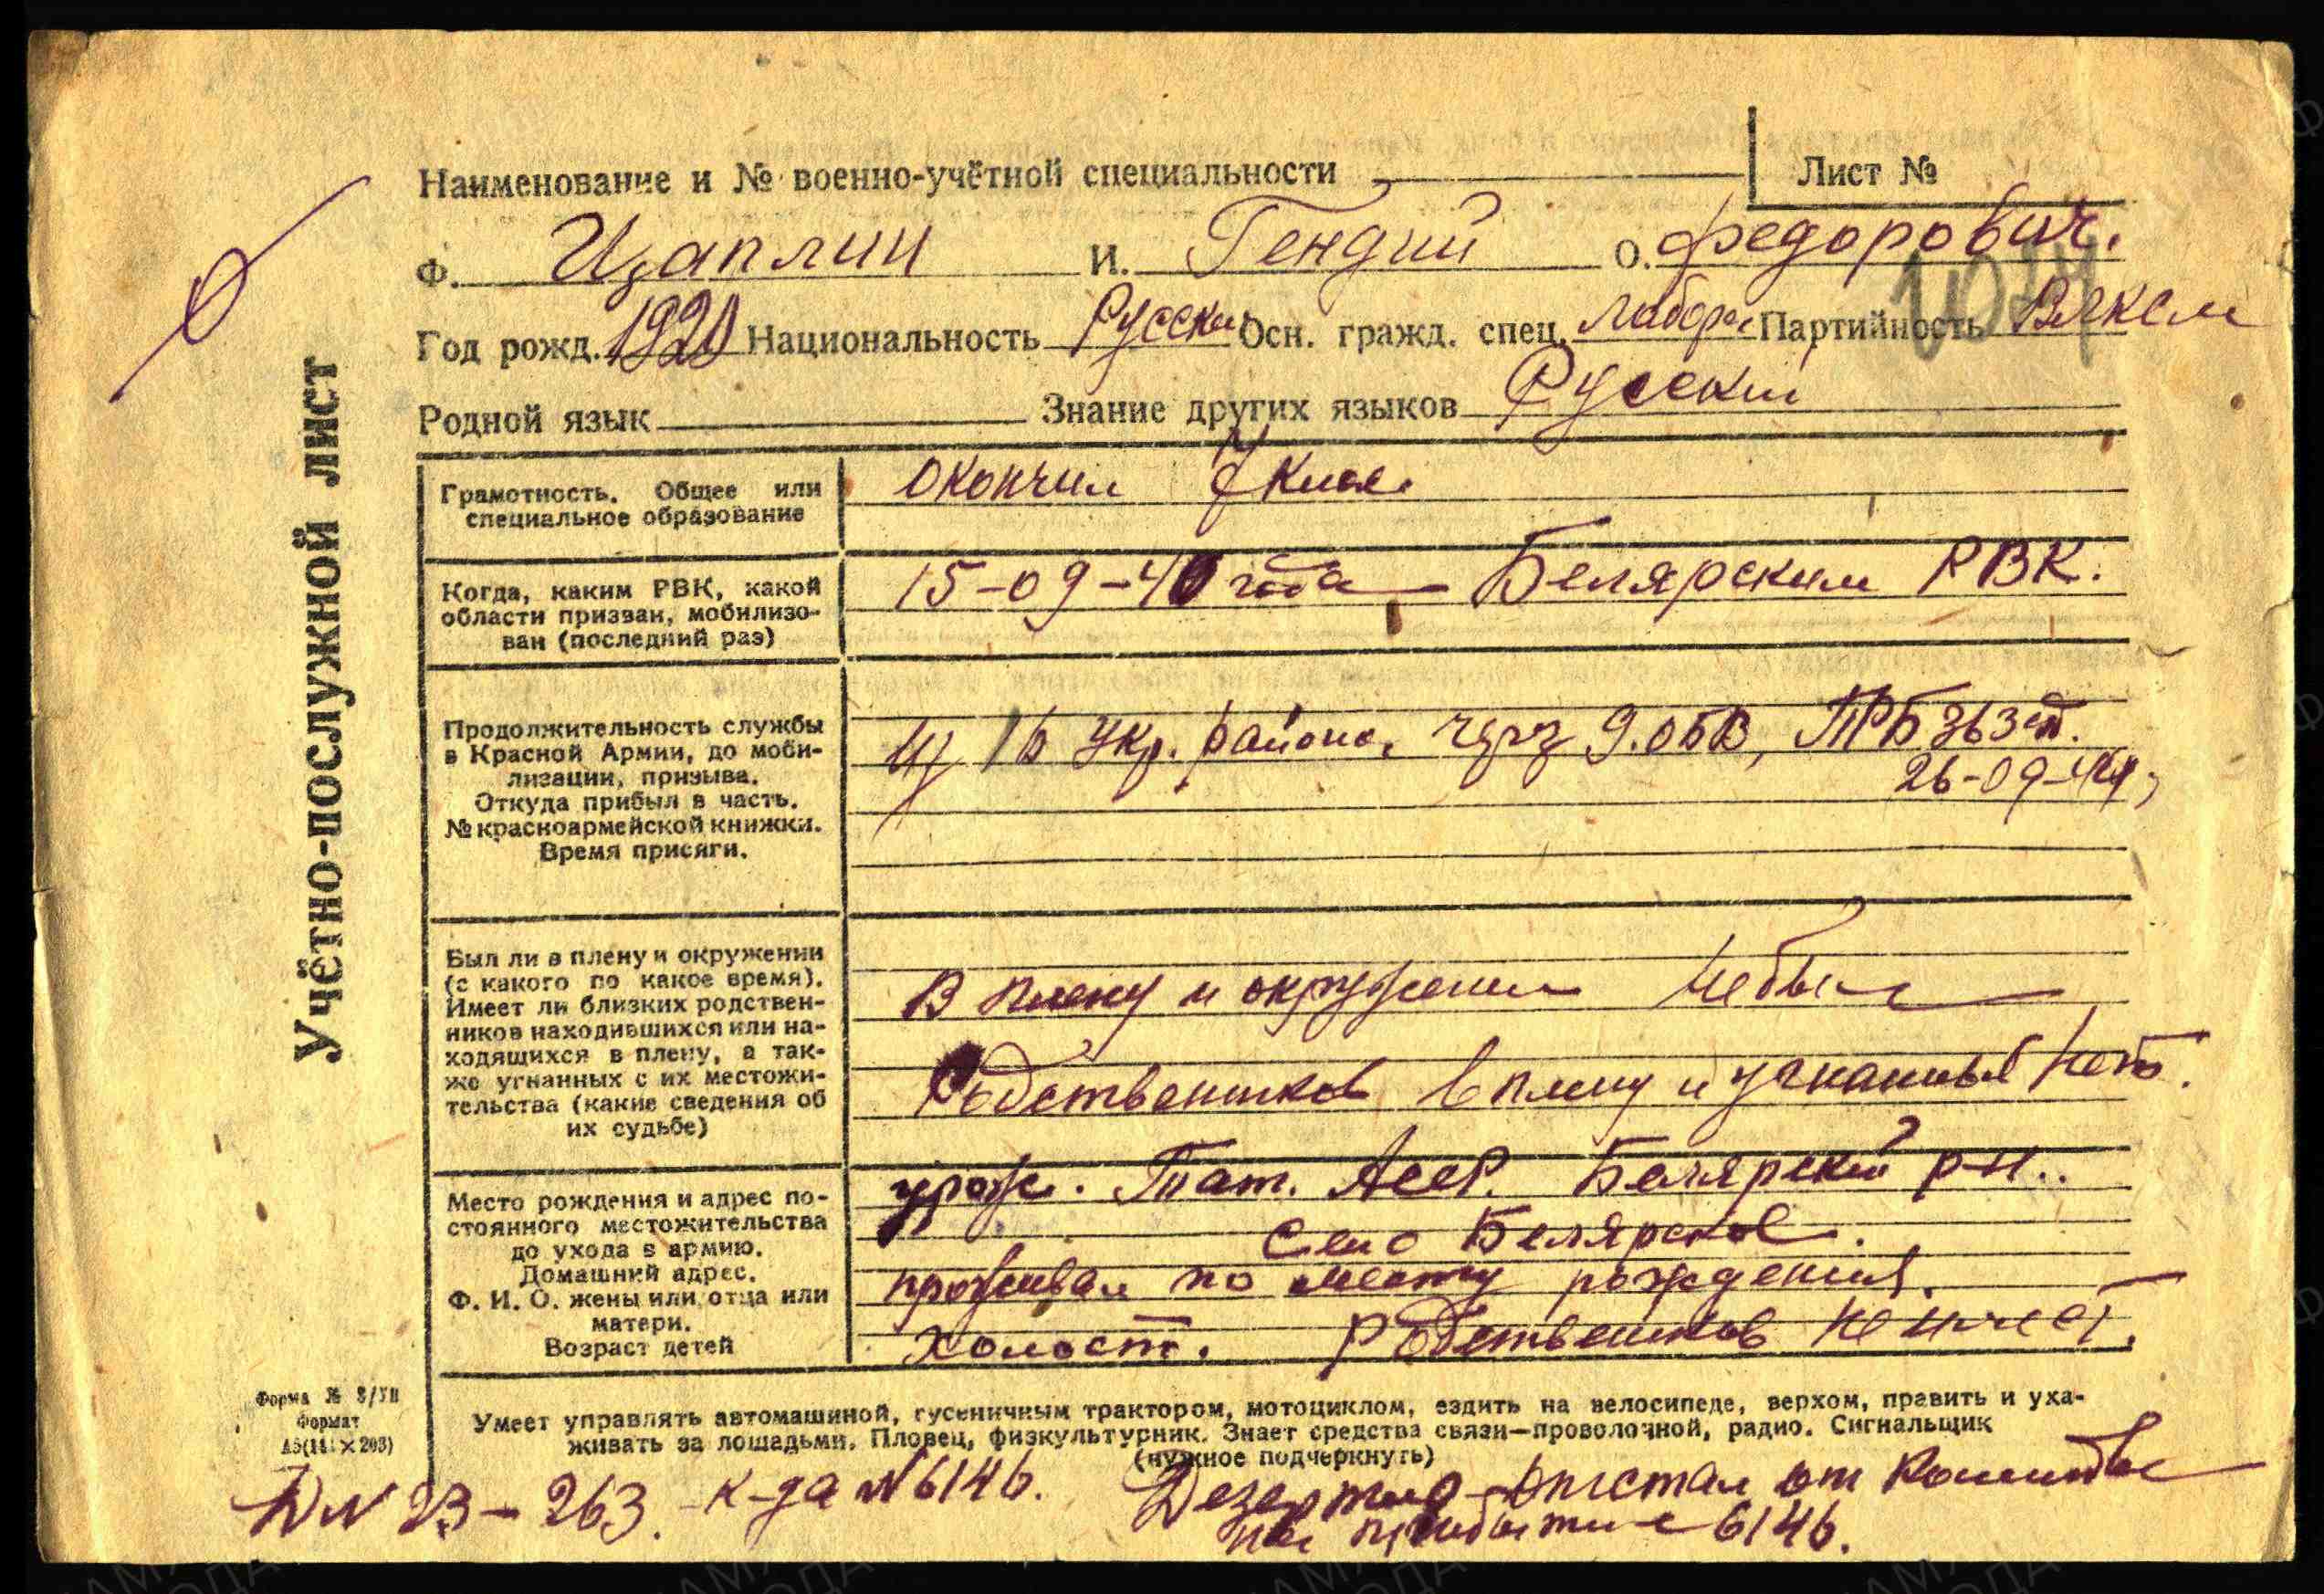 Наименование и № военно-учётной специальности — Лист №
Ф. Цаплин И. Гендий О. Федорович.
Год рожд. 1920 Национальность Русский Осн. гражд. спец. Партийность ВЛКСМ
Родной язык Знание других языков Русский
Учётно-послужной лист
Грамотность. Общее или
специальное образование
окончил 7 клас.
Когда, каким РВК, какой
области призван, мобилизо-
ван (последний раз)
15-09-40 года — Белярским РВК.
Продолжительность службы
в Красной Армии, до моби-
лизации, призыва.
Откуда прибыл в часть.
№ красноармейской книжки.
Время присяги.
Из 16 Укр. района. через 9.ОБВ,
26-09-44,
Был ли в плену и окружении
(с какого по какое время).
Имеет ли близких родствен-
ников находившихся или на-
ходящихся в плену, а так-
же угнанных с их местожи-
тельства (какие сведения об
их судьбе)
В плену и окружении небыл
Родственников в плену и угнанных нет.
Место рождения и адрес по-
стоянного местожительства
до ухода в армию.
Домашний адрес.
Ф. И. О. жены или отца или
матери.
Возраст детей
урож. Тат. АССР. Белярский р-н..
Село Белярское.
проживал по месту рождения.
холост. Родственников не имеет.
Форма № 8/УП
Формат
А5(148×203)
Умеет управлять автомашиной, гусеничным трактором, мотоциклом, ездить на велосипеде, верхом, править и уха-
живать за лошадьми. Пловец, физкультурник. Знает средства связи—проволочной, радио. Сигнальщик
(нужное подчеркнуть)
23 - 263. к-да № 6146. отстал от команды
6146.